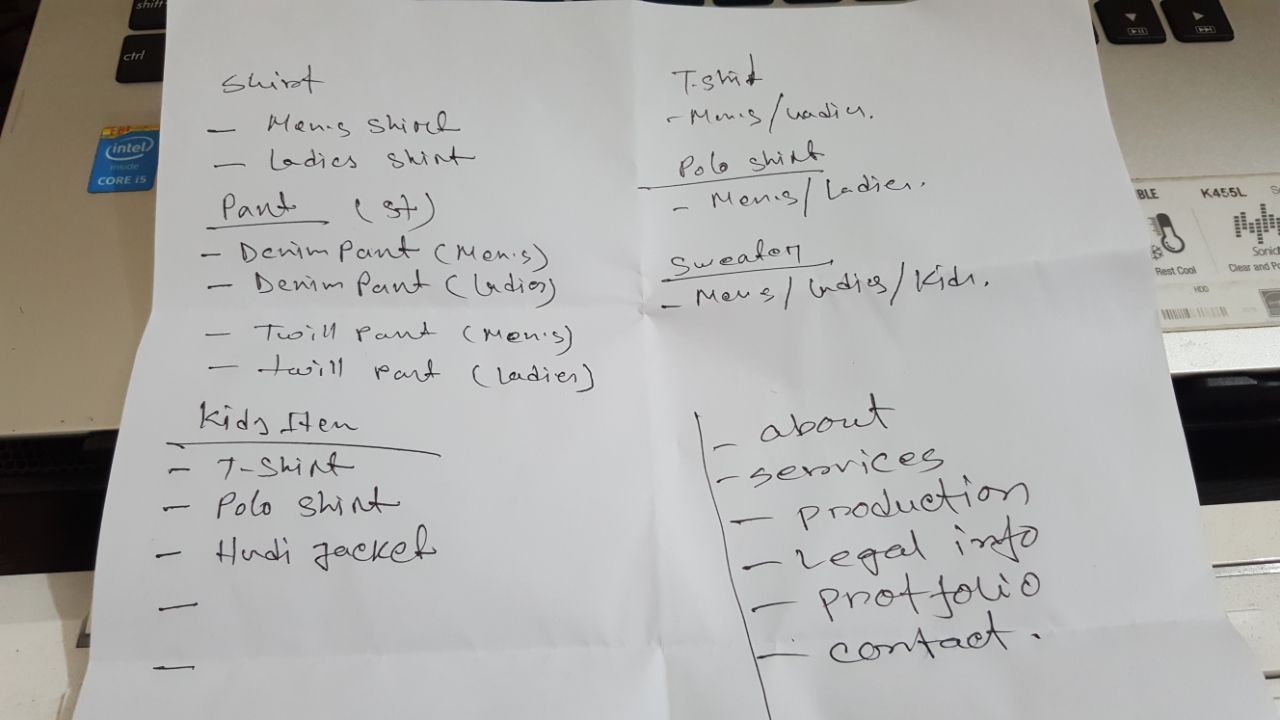 shirt
- Men's shirt
- Ladies shirt
Pant (st)
- Denim Pant (Men's)
- Denim Pant (Ladies)
- Twill Pant (Men's)
- twill pant (Ladies)
Kids Item
- T-Shirt
- Polo shirt
- Hudi Jacket
-
-
T-shirt
- Men's/Ladies.
Polo shirt
- Men's/Ladies.
Sweater
- Mens/Ladies/Kids.
- about
- services
- production
- Legal info
- protfolio
- contact.
shift
ctrl
intel
inside
CORE i5
BLE K455L
Rest Cool
Sonic
Clear and Po
HDD